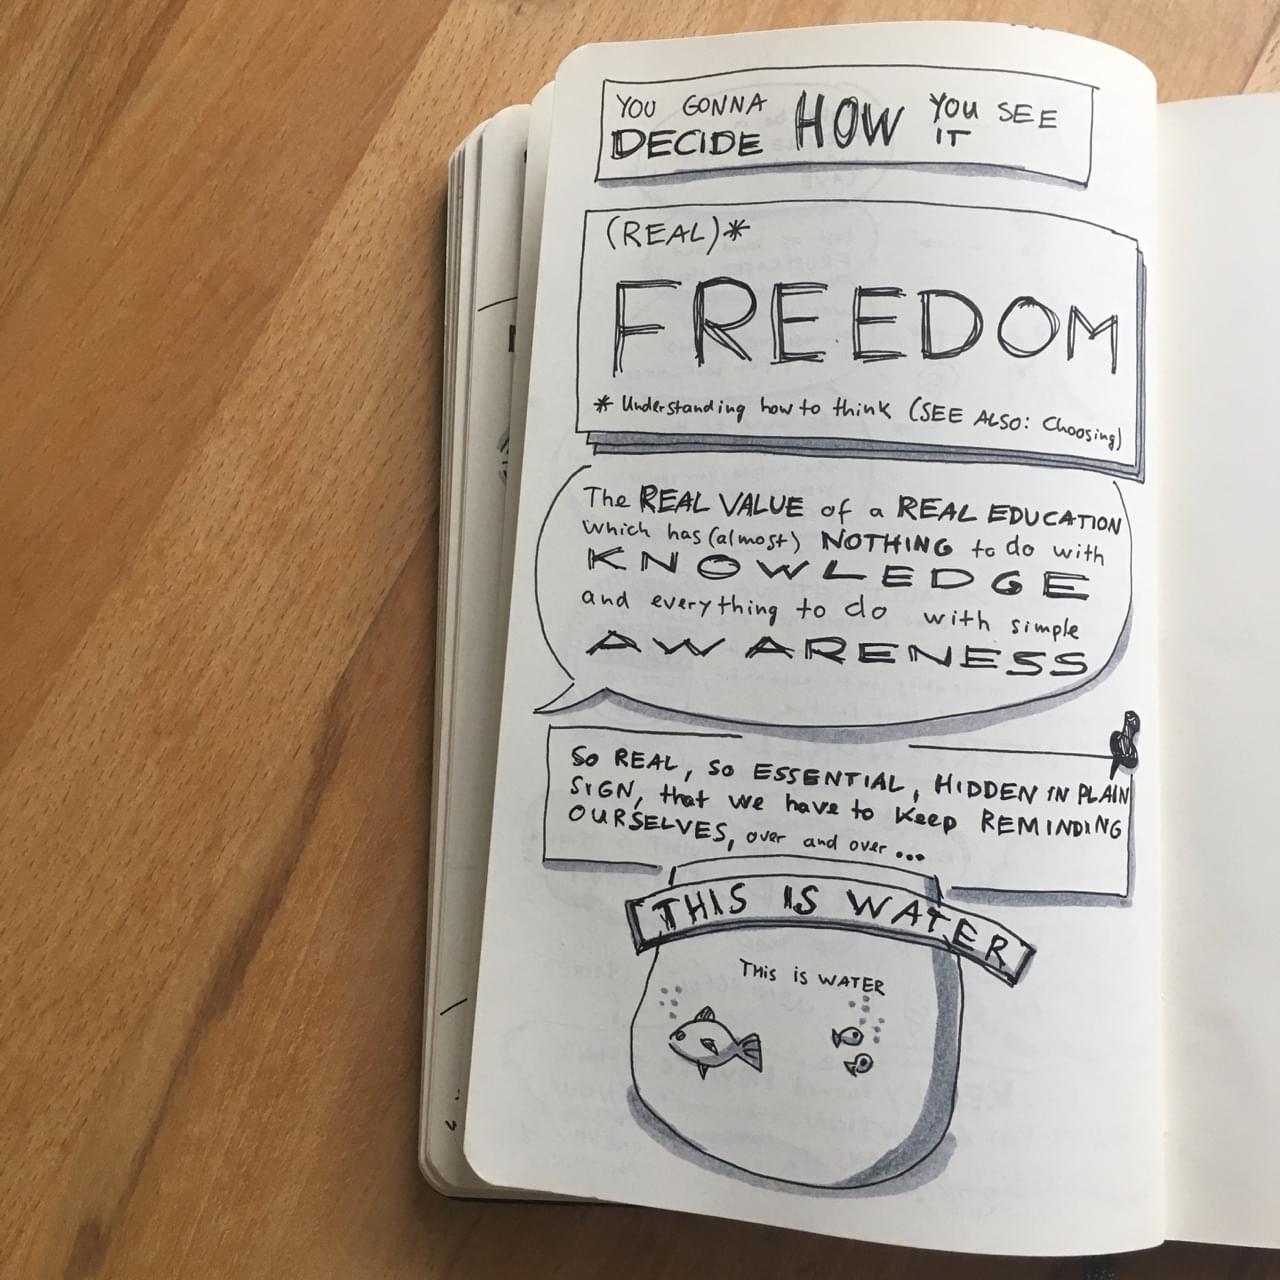 YOU GONNA
DECIDE HOW YOU SEE IT
(REAL)*
FREEDOM
* Understanding how to think (SEE ALSO: Choosing)
The REAL VALUE of a REAL EDUCATION
which has (almost) NOTHING to do with
KNOWLEDGE
and everything to do with simple
AWARENESS
SO REAL, SO ESSENTIAL, HIDDEN IN PLAIN
SIGN, that we have to keep REMINDING
OURSELVES, over and over...
THIS IS WATER
THIS IS WATER